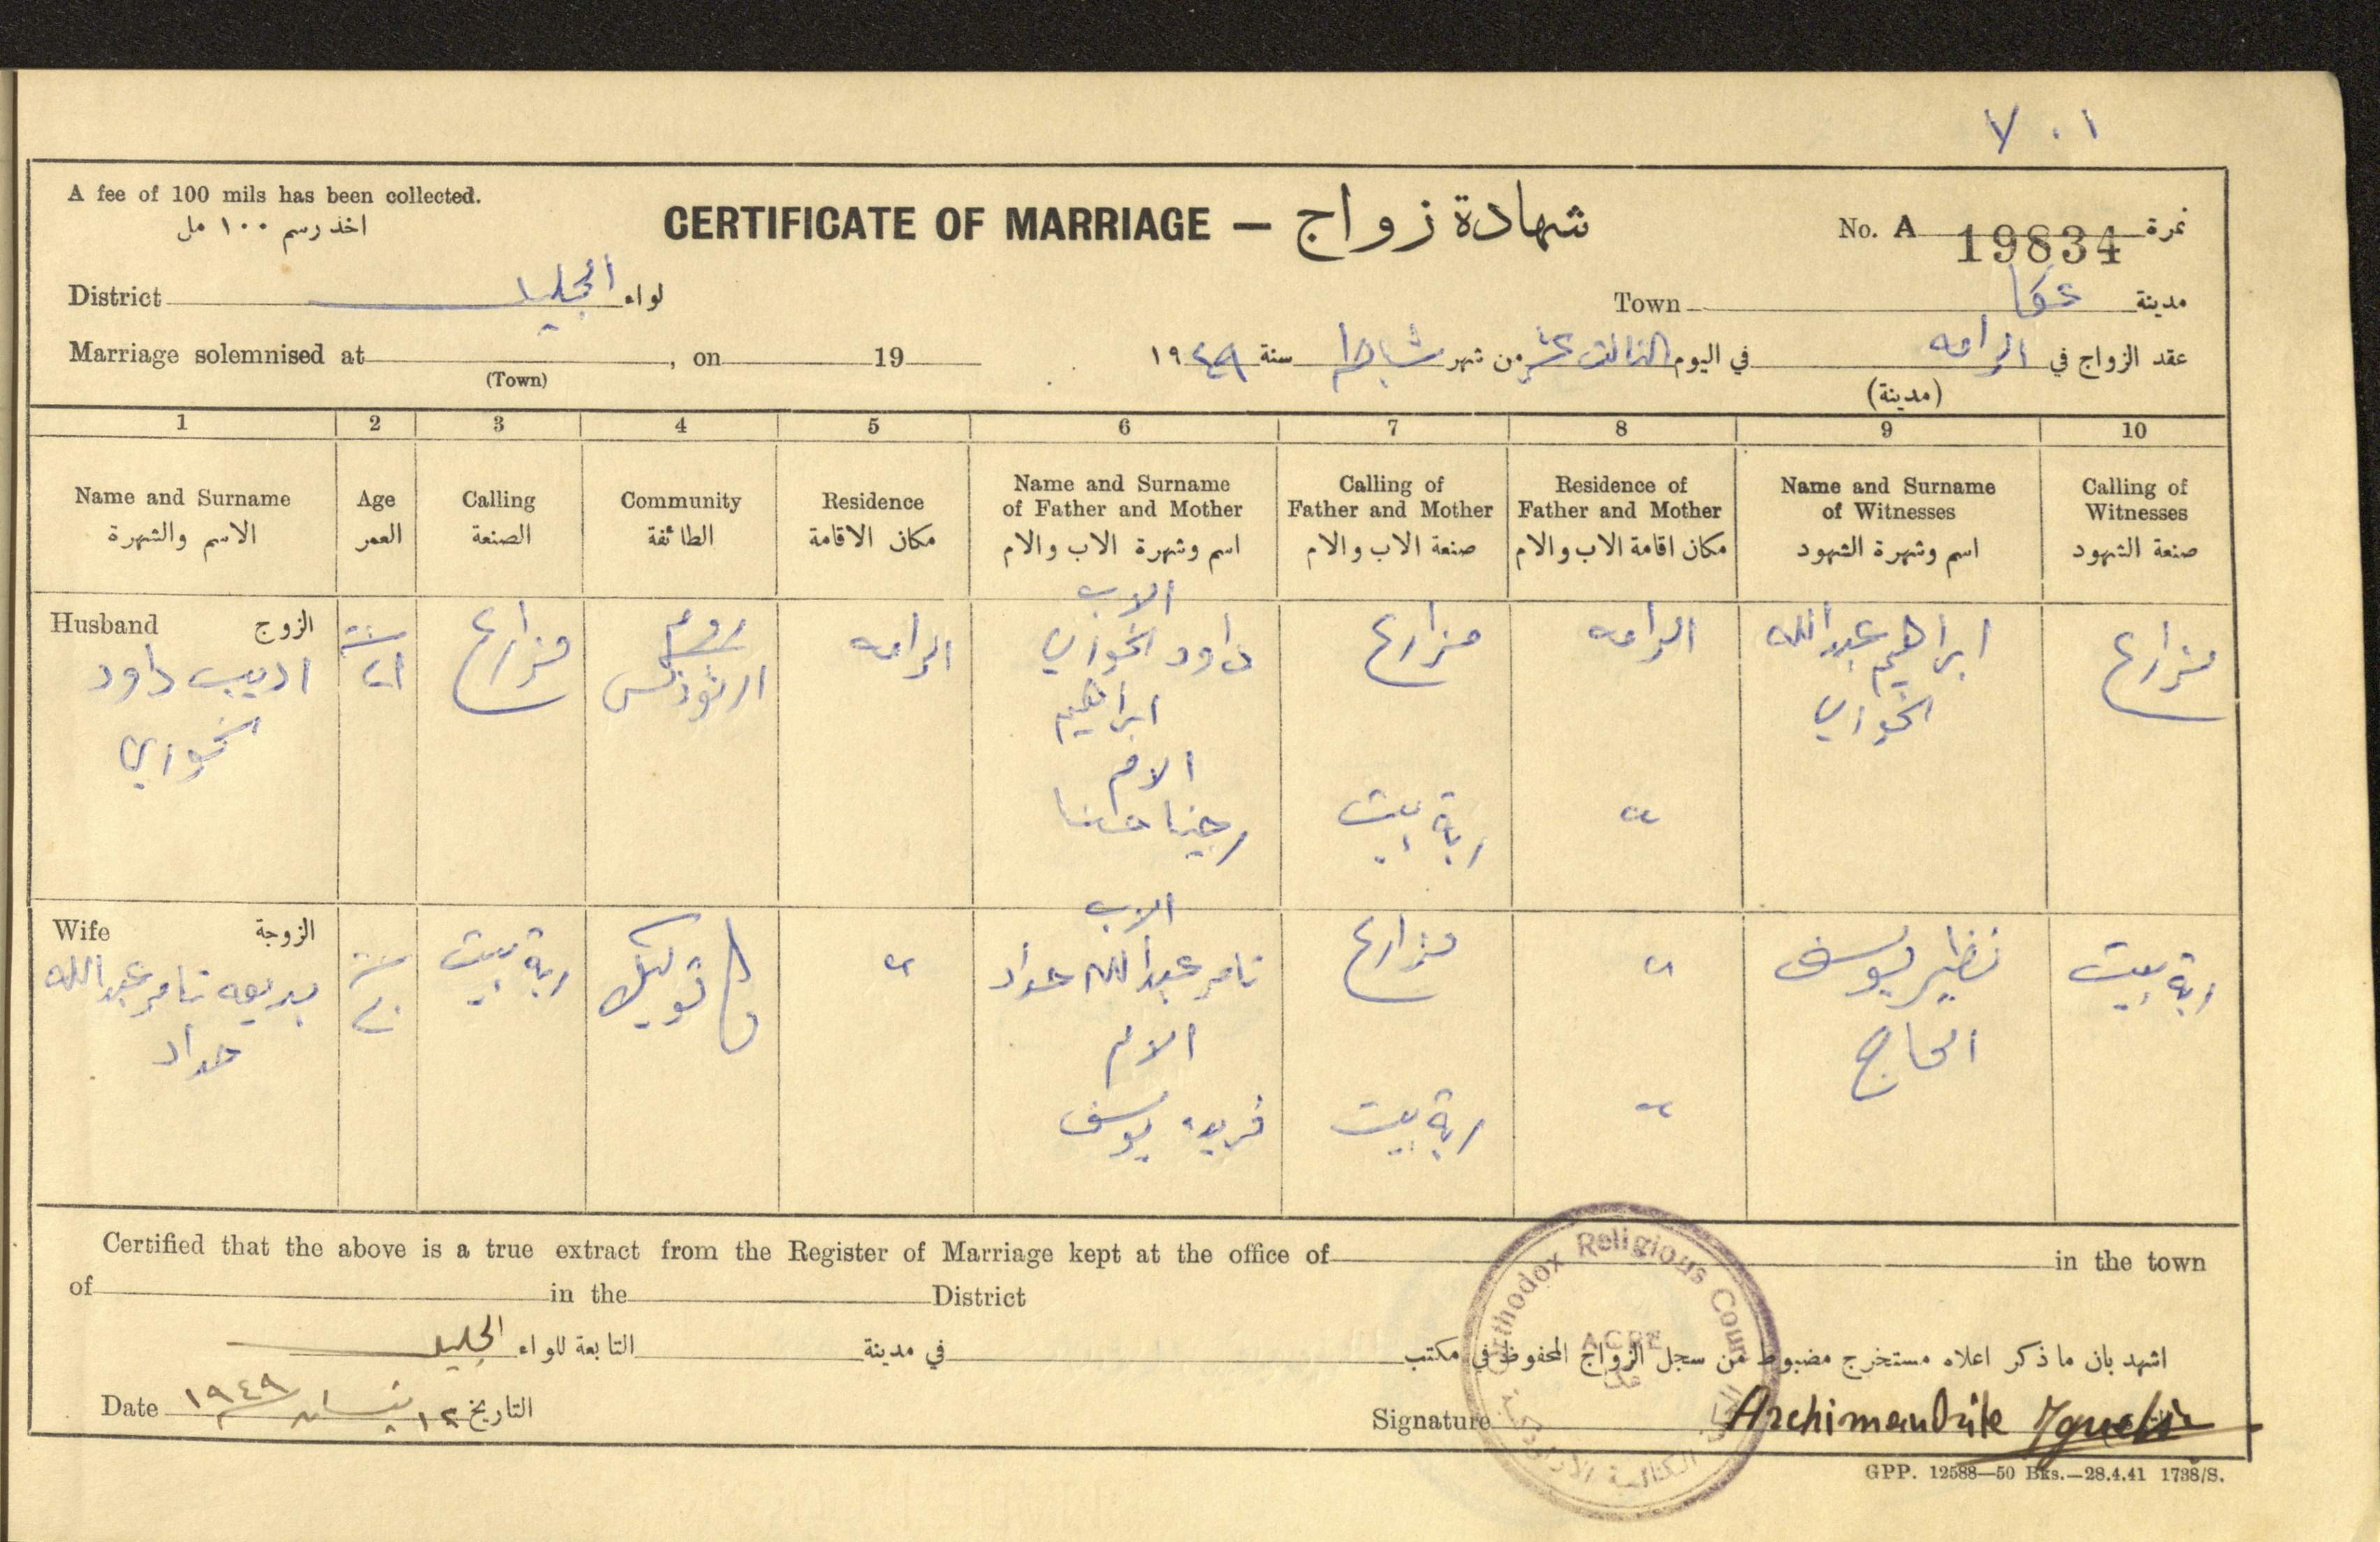 ٧٠١
A fee of 100 mils has been collected.
اخذ رسم ١٠٠ مل
CERTIFICATE OF MARRIAGE — شهادة زواج
No. A 19834 نمرة
District الجليل لواء
Town عكا مدينة
Marriage solemnised at , on 19
(Town)
عقد الزواج في الرامه في اليوم الثالث عشر من شهر شباط سنة ١٩٤٩
(مدينة)
1 2 3 4 5 6 7 8 9 10
Name and Surname
الاسم والشهرة
Age
العمر
Calling
الصنعة
Community
الطائفة
Residence
مكان الاقامة
Name and Surname
of Father and Mother
اسم وشهرة الاب والام
Calling of
Father and Mother
صنعة الاب والام
Residence of
Father and Mother
مكان اقامة الاب والام
Name and Surname
of Witnesses
اسم وشهرة الشهود
Calling of
Witnesses
صنعة الشهود
Husband الزوج
اديب داود
الخوري
سنة
مزارع
روم
ارثوذكس
الرامه
الاب
داود الخوري
ابراهيم
الام
رجينا حنا
مزارع
ربة بيت
الرامه
"
ابراهيم عبدالله
الخوري
مزارع
Wife الزوجة
بديعه تامر عبدالله
حداد
سنة
٢٠
ربة بيت
كاثوليك
"
الاب
تامر عبدالله حداد
الام
فريده يوسف
مزارع
ربة بيت
"
"
نظير يوسف
الحاج
ربة بيت
Certified that the above is a true extract from the Register of Marriage kept at the office of in the town
of in the District
اشهد بان ما ذكر اعلاه مستخرج مضبوط من سجل الزواج المحفوظ في مكتب في مدينة التابعة للواء الجليل
Date ١٢ نيسان ١٩٤٩ التاريخ
Signature Archimandrite
Orthodox Religious Court
ACRE
عكا
GPP. 12588—50 Bks.—28.4.41 1738/S.